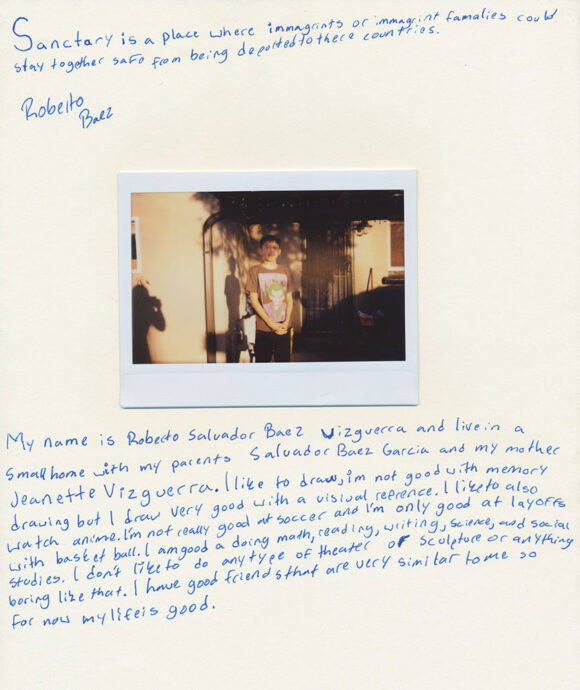 Sanctary is a place where immagrints or immagrint famalies could
stay together safe from being deported to there countries.
Roberto
Baez
My name is Roberto Salvador Baez Vizguerra and live in a
small home with my parents Salvador Baez Garcia and my mother
Jeanette Vizguerra. I like to draw, im not good with memory
drawing but I draw very good with a visiual reprence. I like to also
watch anime. I'm not really good at soccer and I'm only good at layoffs
with basket ball. I am good a doing math, reading, writing, science, and social
studies. I don't like to do any type of theater or sculpture or anything
boring like that. I have good friends that are very similar to me so
for now my life is good.